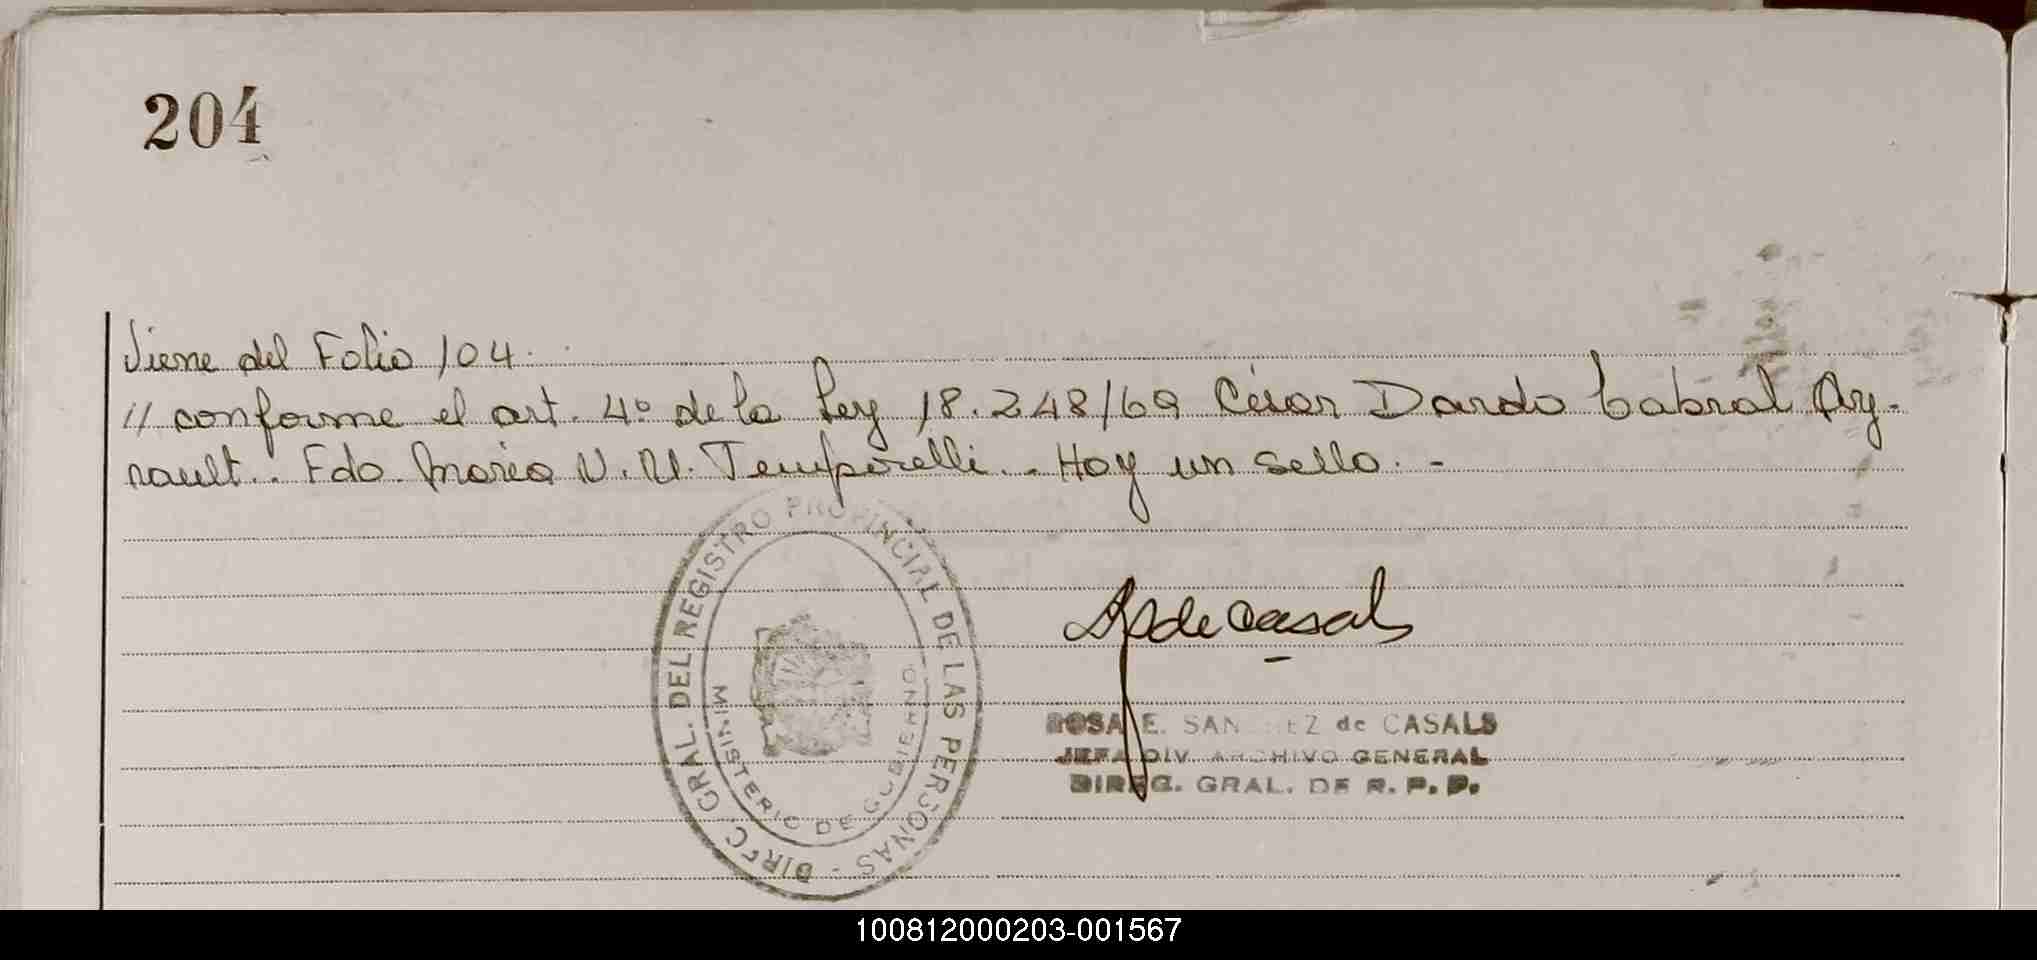 204
Viene del Folio 104.
// conforme el art. 4º de la Ley 18.248/69 César Dardo Cabral Ay-
nault. . Fdo. María N. U. Temporelli. . Hay un sello. -
DIREC. GRAL. DEL REGISTRO PROVINCIAL DE LAS PERSONAS -
MINISTERIO DE GOBIERNO
de Casals
ROSA E. SANCHEZ de CASALS
JEFA DIV. ARCHIVO GENERAL
DIREC. GRAL. DE R. P. P.
100812000203-001567